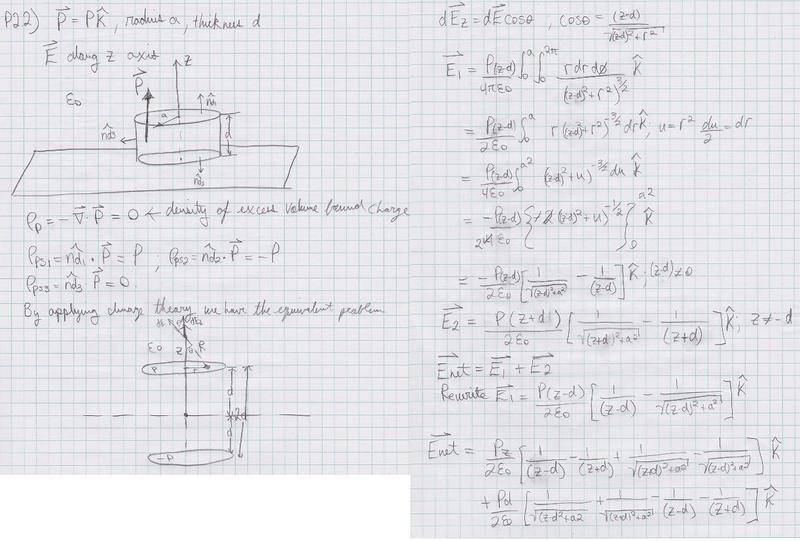 P22) P⃗ = PK̂ , radius a, thickness d
E⃗ along z axis
P⃗
z
ε₀
n̂d₁
a
d
n̂d₃
n̂d₂
ρp = -∇⃗·P⃗ = 0 ← density of excess volume bound charge
ρps1 = n̂d₁·P⃗ = P ; ρps2 = n̂d₂·P⃗ = -P
ρps3 = n̂d₃·P⃗ = 0.
By applying image theory we have the equivalent problem
ε₀
z
θ
R
P
r
d
2d
d
-P
dE⃗z = dE⃗cosθ , cosθ = (z-d)/√((z-d)²+r²)
E⃗₁ = P(z-d)/4πε₀ ∫₀^a ∫₀^2π r dr dø/((z-d)²+r²)^3/2 K̂
= P(z-d)/2ε₀ ∫₀^a r((z-d)²+r²)^-3/2 dr K̂, u = r² du/2 = dr
= P(z-d)/4ε₀ ∫₀^a² ((z-d)²+u)^-3/2 du K̂
= -P(z-d)/2ε₀ {((z-d)²+u)^-1/2}₀^a² K̂
= -P(z-d)/2ε₀ [1/√((z-d)²+a²) - 1/(z-d)] K̂ ; (z-d)≠0
E⃗₂ = P(z+d)/2ε₀ [1/√((z+d)²+a²) - 1/(z+d)] K̂ ; z≠-d
E⃗net = E⃗₁ + E⃗₂
Rewrite E⃗₁ = P(z-d)/2ε₀ [1/(z-d) - 1/√((z-d)²+a²)] K̂
E⃗net = Pz/2ε₀ [1/(z-d) - 1/(z+d) + 1/√((z+d)²+a²) - 1/√((z-d)²+a²)] K̂
+ Pd/2ε₀ [1/√((z-d)²+a²) + 1/√((z+d)²+a²) - 1/(z-d) - 1/(z+d)] K̂